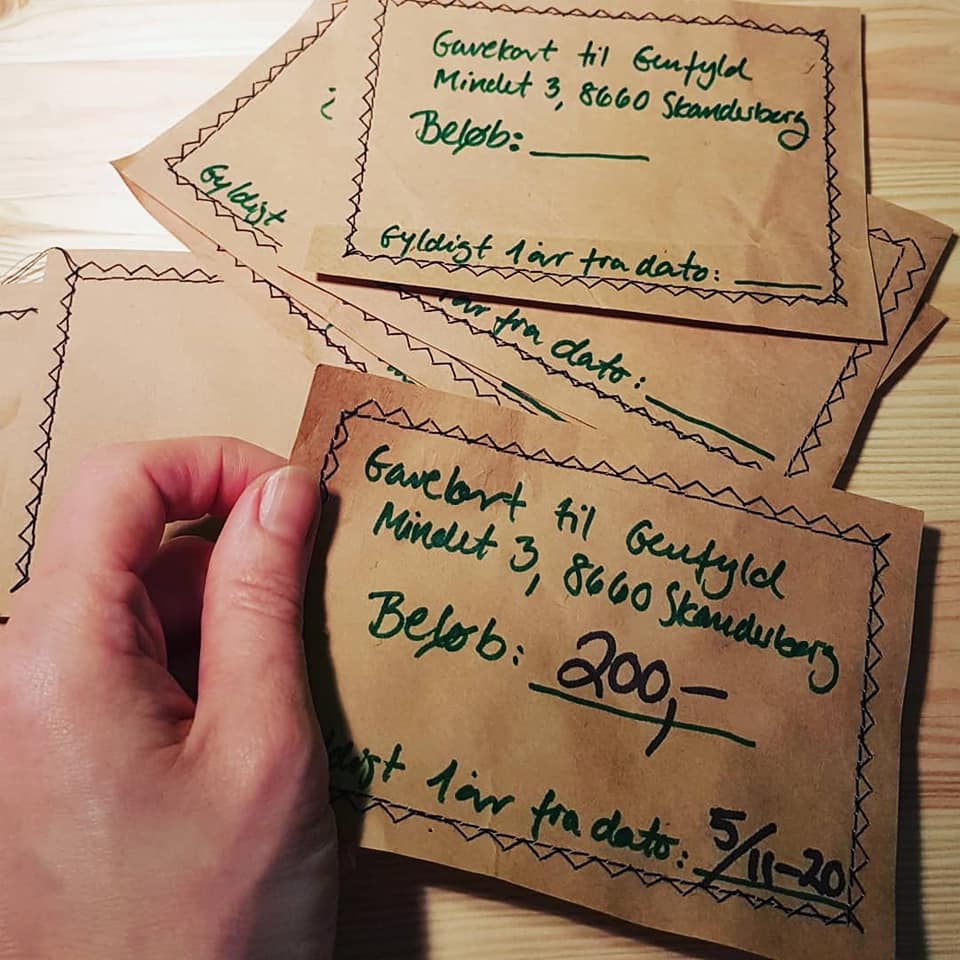 Gavekort til Genfyld
Mindet 3, 8660 Skanderborg
Beløb:
Gyldigt 1 år fra dato:
Gyldigt
år fra dato:
Gavekort til Genfyld
Mindet 3, 8660 Skanderborg
Beløb: 200,-
digt 1 år fra dato: 5/11-20